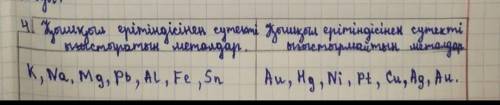 4) Қышқыл ерітіндісінен сутекті
ығыстыратын металдар.
Қышқыл ерітіндісінен сутекті
ығыстырмайтын металдар
K, Na, Mg, Pb, Al, Fe, Sn
Au, Hg, Ni, Pt, Cu, Ag, Au.